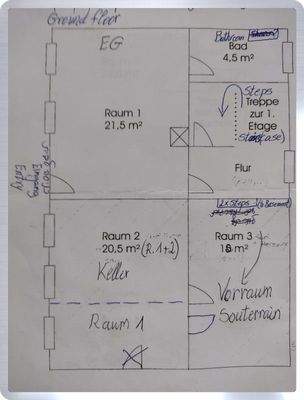 Ground floor
EG
Bathroom
Bad
4,5 m²
Raum 1
21,5 m²
Steps
Treppe
zur 1.
Etage
(staircase)
Flur
Eingang
Entry
2x Steps
Raum 2
20,5 m² (R.1+2)
Raum 3
Keller
Vorraum
Souterrain
Raum 1